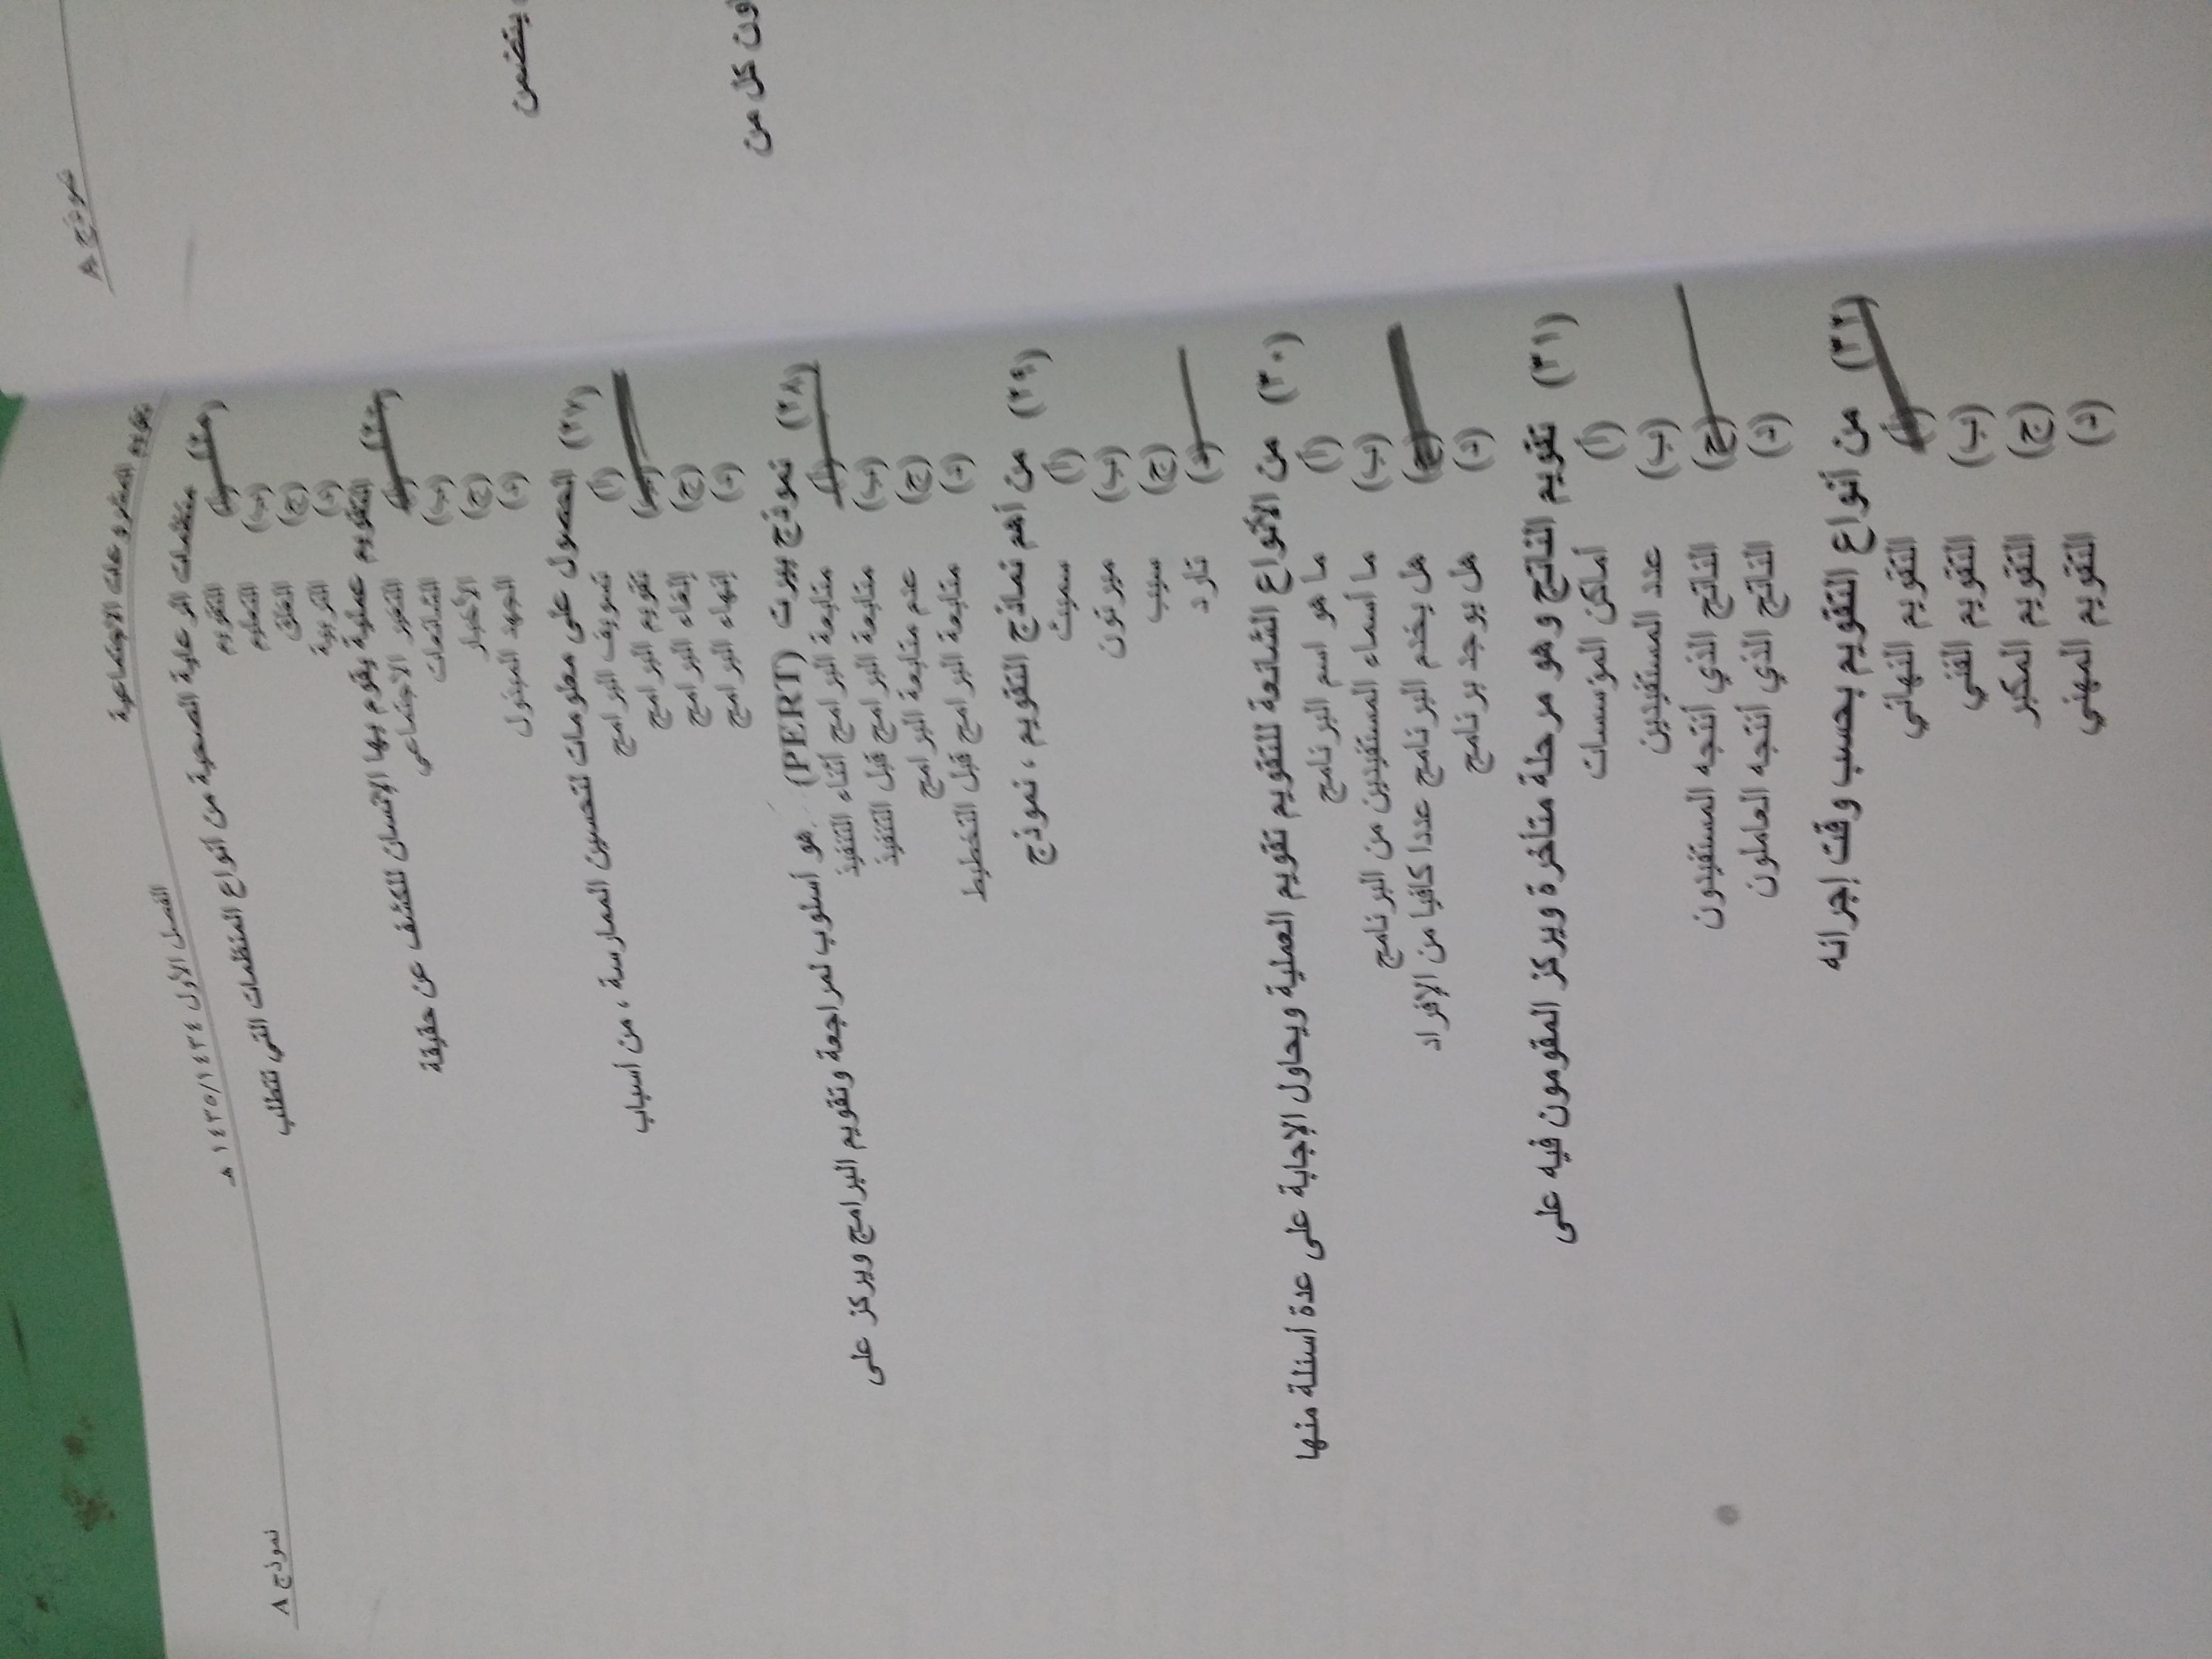 نموذج A
يتضمن
ون كل من
تقويم المشروعات الاجتماعية
الفصل الأول ١٤٣٥/١٤٣٤ هـ
نموذج A
(٢٥) منظمات الرعاية الصحية من أنواع المنظمات التي تتطلب
(أ) التقويم
(ب) التعليم
(ج) الغلق
(د) التربية
(٢٦) التقويم عملية يقوم بها الإنسان للكشف عن حقيقة
(أ) التغير الاجتماعي
(ب) الشائعات
(ج) الأخبار
(د) الجهد المبذول
(٢٧) الحصول على معلومات لتحسين الممارسة ، من أسباب
(أ) تسويف البرامج
(ب) تقويم البرامج
(ج) إلغاء البرامج
(د) إنهاء البرامج
(٢٨) نموذج بيرت (PERT) هو أسلوب لمراجعة وتقويم البرامج ويركز على
(أ) متابعة البرامج أثناء التنفيذ
(ب) متابعة البرامج قبل التنفيذ
(ج) عدم متابعة البرامج
(د) متابعة البرامج قبل التخطيط
(٢٩) من أهم نماذج التقويم ، نموذج
(أ) سميث
(ب) ميرتون
(ج) سيب
(د) تارد
(٣٠) من الأنواع الشائعة للتقويم تقويم العملية ويحاول الإجابة على عدة أسئلة منها
(أ) ما هو اسم البرنامج
(ب) ما أسماء المستفيدين من البرنامج
(ج) هل يخدم البرنامج عددا كافيا من الإفراد
(د) هل يوجد برنامج
(٣١) تقويم الناتج وهو مرحلة متأخرة ويركز المقومون فيه على
(أ) أماكن المؤسسات
(ب) عدد المستفيدين
(ج) الناتج الذي أنتجه المستفيدون
(د) الناتج الذي أنتجه العاملون
(٣٢) من أنواع التقويم بحسب وقت إجرائه
(أ) التقويم النهائي
(ب) التقويم الفني
(ج) التقويم المكبر
(د) التقويم المهني